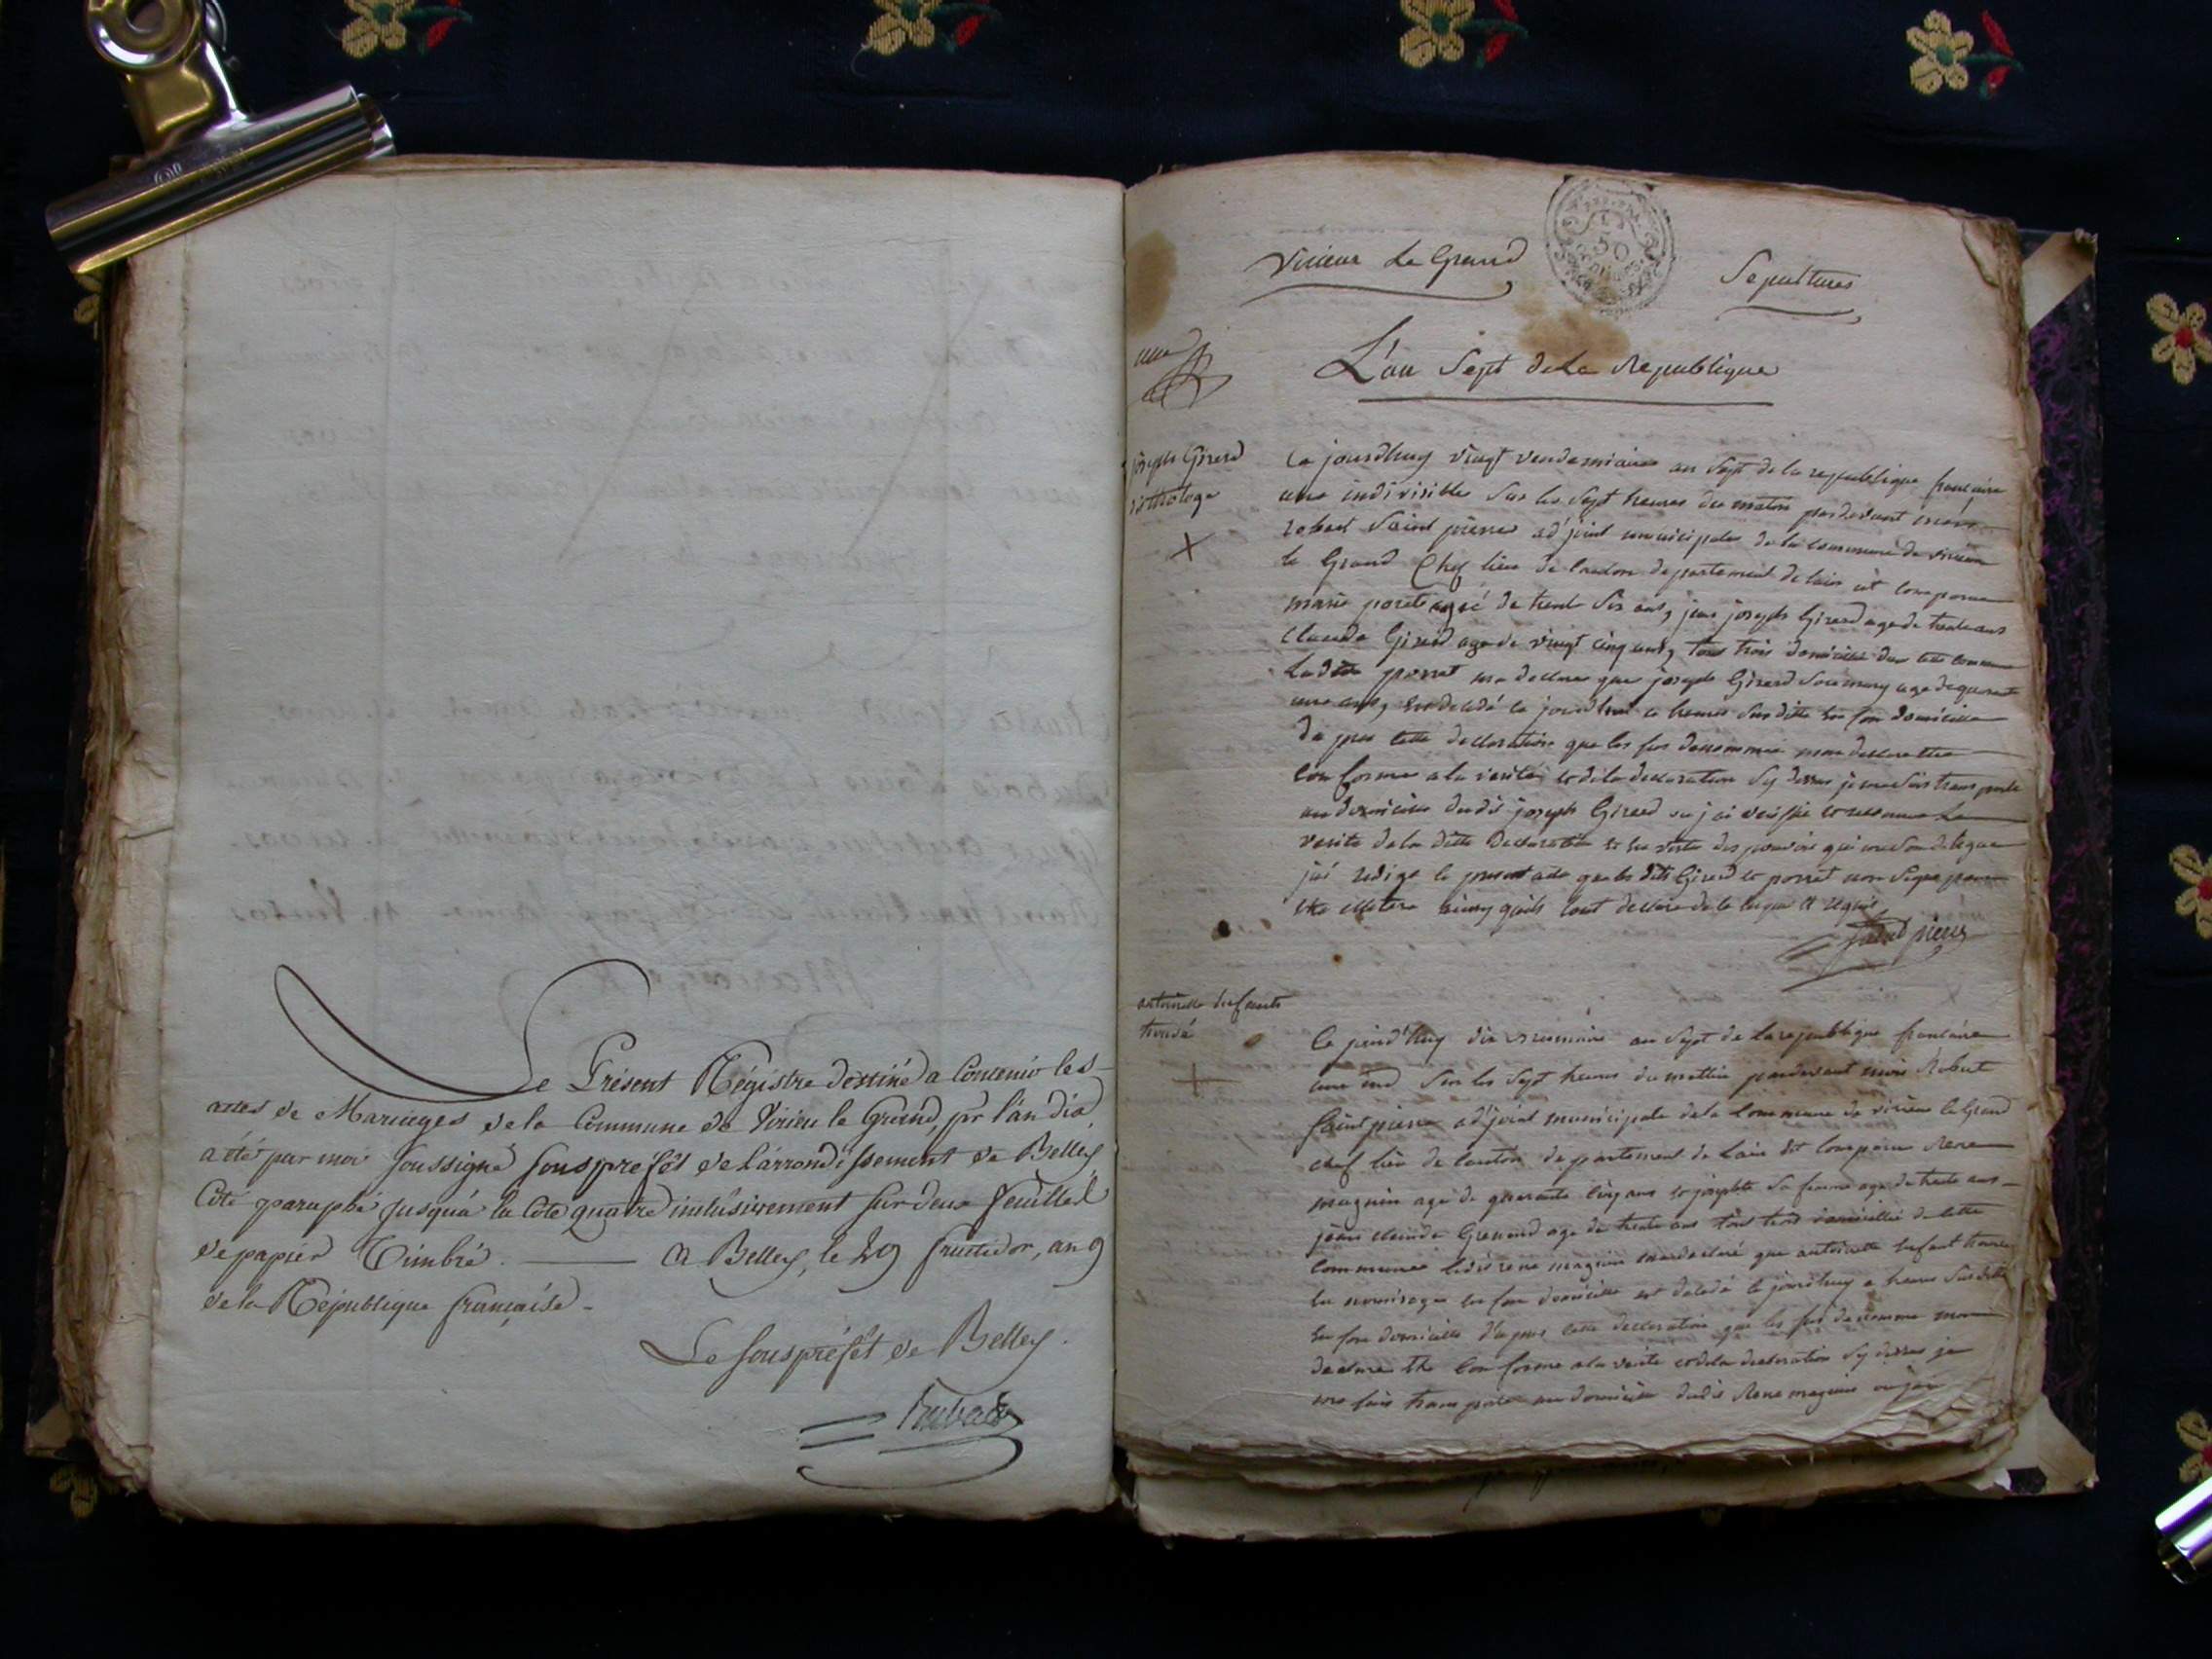 Le Présent Régistre destiné a Contenir les
actes de Mariages de la Commune de Virieu le Grand, pr l'an dix,
a été par moi soussigné souspréfét de l'arrondissement de Belley
Coté paraphé jusqu'à la Cote quatre inclusivement sur deux feuilles
de papier Timbré. a Belley, le 29 fructidor, an 9
de la République française.
Le souspréfét de Belley.
Virieux Le Grand
Sepultures
L'an Sept de La Republique
joseph Girerd
Ce jourdhuy vingt vendemiaire an Sept de la republique francaise
une indivisible Sur les Sept heures du matin pardevant moi
robert Saint pierre adjoint municipale de la commune de virieu
le Grand Chef lieu de canton departement de lain est comparue
marie poret agéé de trente six ans, jean joseph Girerd age de trente ans
Claude Girerd age de vingt cinq ans, tous trois domicilié dans cette commune
Ladite porret ma declaré que joseph Girerd Son mary age de quarente
ans, est décédé ce jourdhui a heures Sus ditte en son domicille
da pres cette declaration que les sus denommé mon declare etre
conforme a la verité et de la declaration Sy dessus je me suis transporte
au domicille dudit joseph Girerd ou jai
verite de la ditte Declaration et en vertu des pouvoir qui me son delegue
jai redige le present acte que les dits Girerd et porret non Signé pour
Saint pierre
antoinette enfants
trouvé
Ce jourd'huy dix brumaire an Sept de la republique francaise
une ind Sur les Sept heures du mattin pardevant moi Robert
Saint pierre adjoint municipale de la Commune de virieu le Grand
chef lieu de canton departement de Lain est comparu Rene
magnin age de quarante cinq ans et josephte Sa femme age de trente ans
jean claude Grenand age de trente ans tous trois domicillié de cette
commune ledit rene magnin ma declaré que antoinette enfant trouvé
en son domicille est décédé ce jourdhuy a heures Susditte
en son domicille d'apres cette declaration que les sus denomme mon
declare etre conforme a la verité et de la declaration Sy dessus je
me suis transporte au domicille dudit Rene magnin ou jai